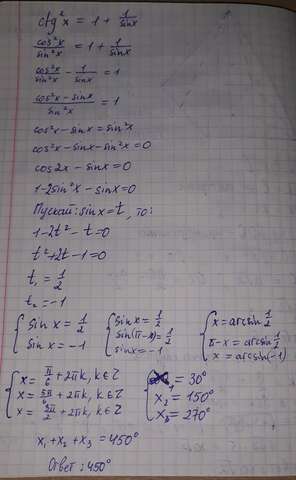 ctg²x = 1 + 1/sinx
cos²x/sin²x = 1 + 1/sinx
cos²x/sin²x - 1/sinx = 1
cos²x - sinx/sin²x = 1
cos²x - sinx = sin²x
cos²x - sinx - sin²x = 0
cos2x - sinx = 0
1 - 2sin²x - sinx = 0
Пускай: sinx = t, то:
1 - 2t² - t = 0
t² + 2t - 1 = 0
t₁ = 1/2
t₂ = -1
{ sin x = 1/2 { sin x = 1/2 { x = arcsin 1/2
sin x = -1 sin(π-x) = 1/2 π - x = arcsin 1/2
sinx = -1 x = arcsin(-1)
{ x = π/6 + 2πk, k∈Z { x₁ = 30°
x = 5π/6 + 2πk, k∈Z x₂ = 150°
x = 3π/2 + 2πk, k∈Z x₃ = 270°
x₁ + x₂ + x₃ = 450°
Ответ: 450°